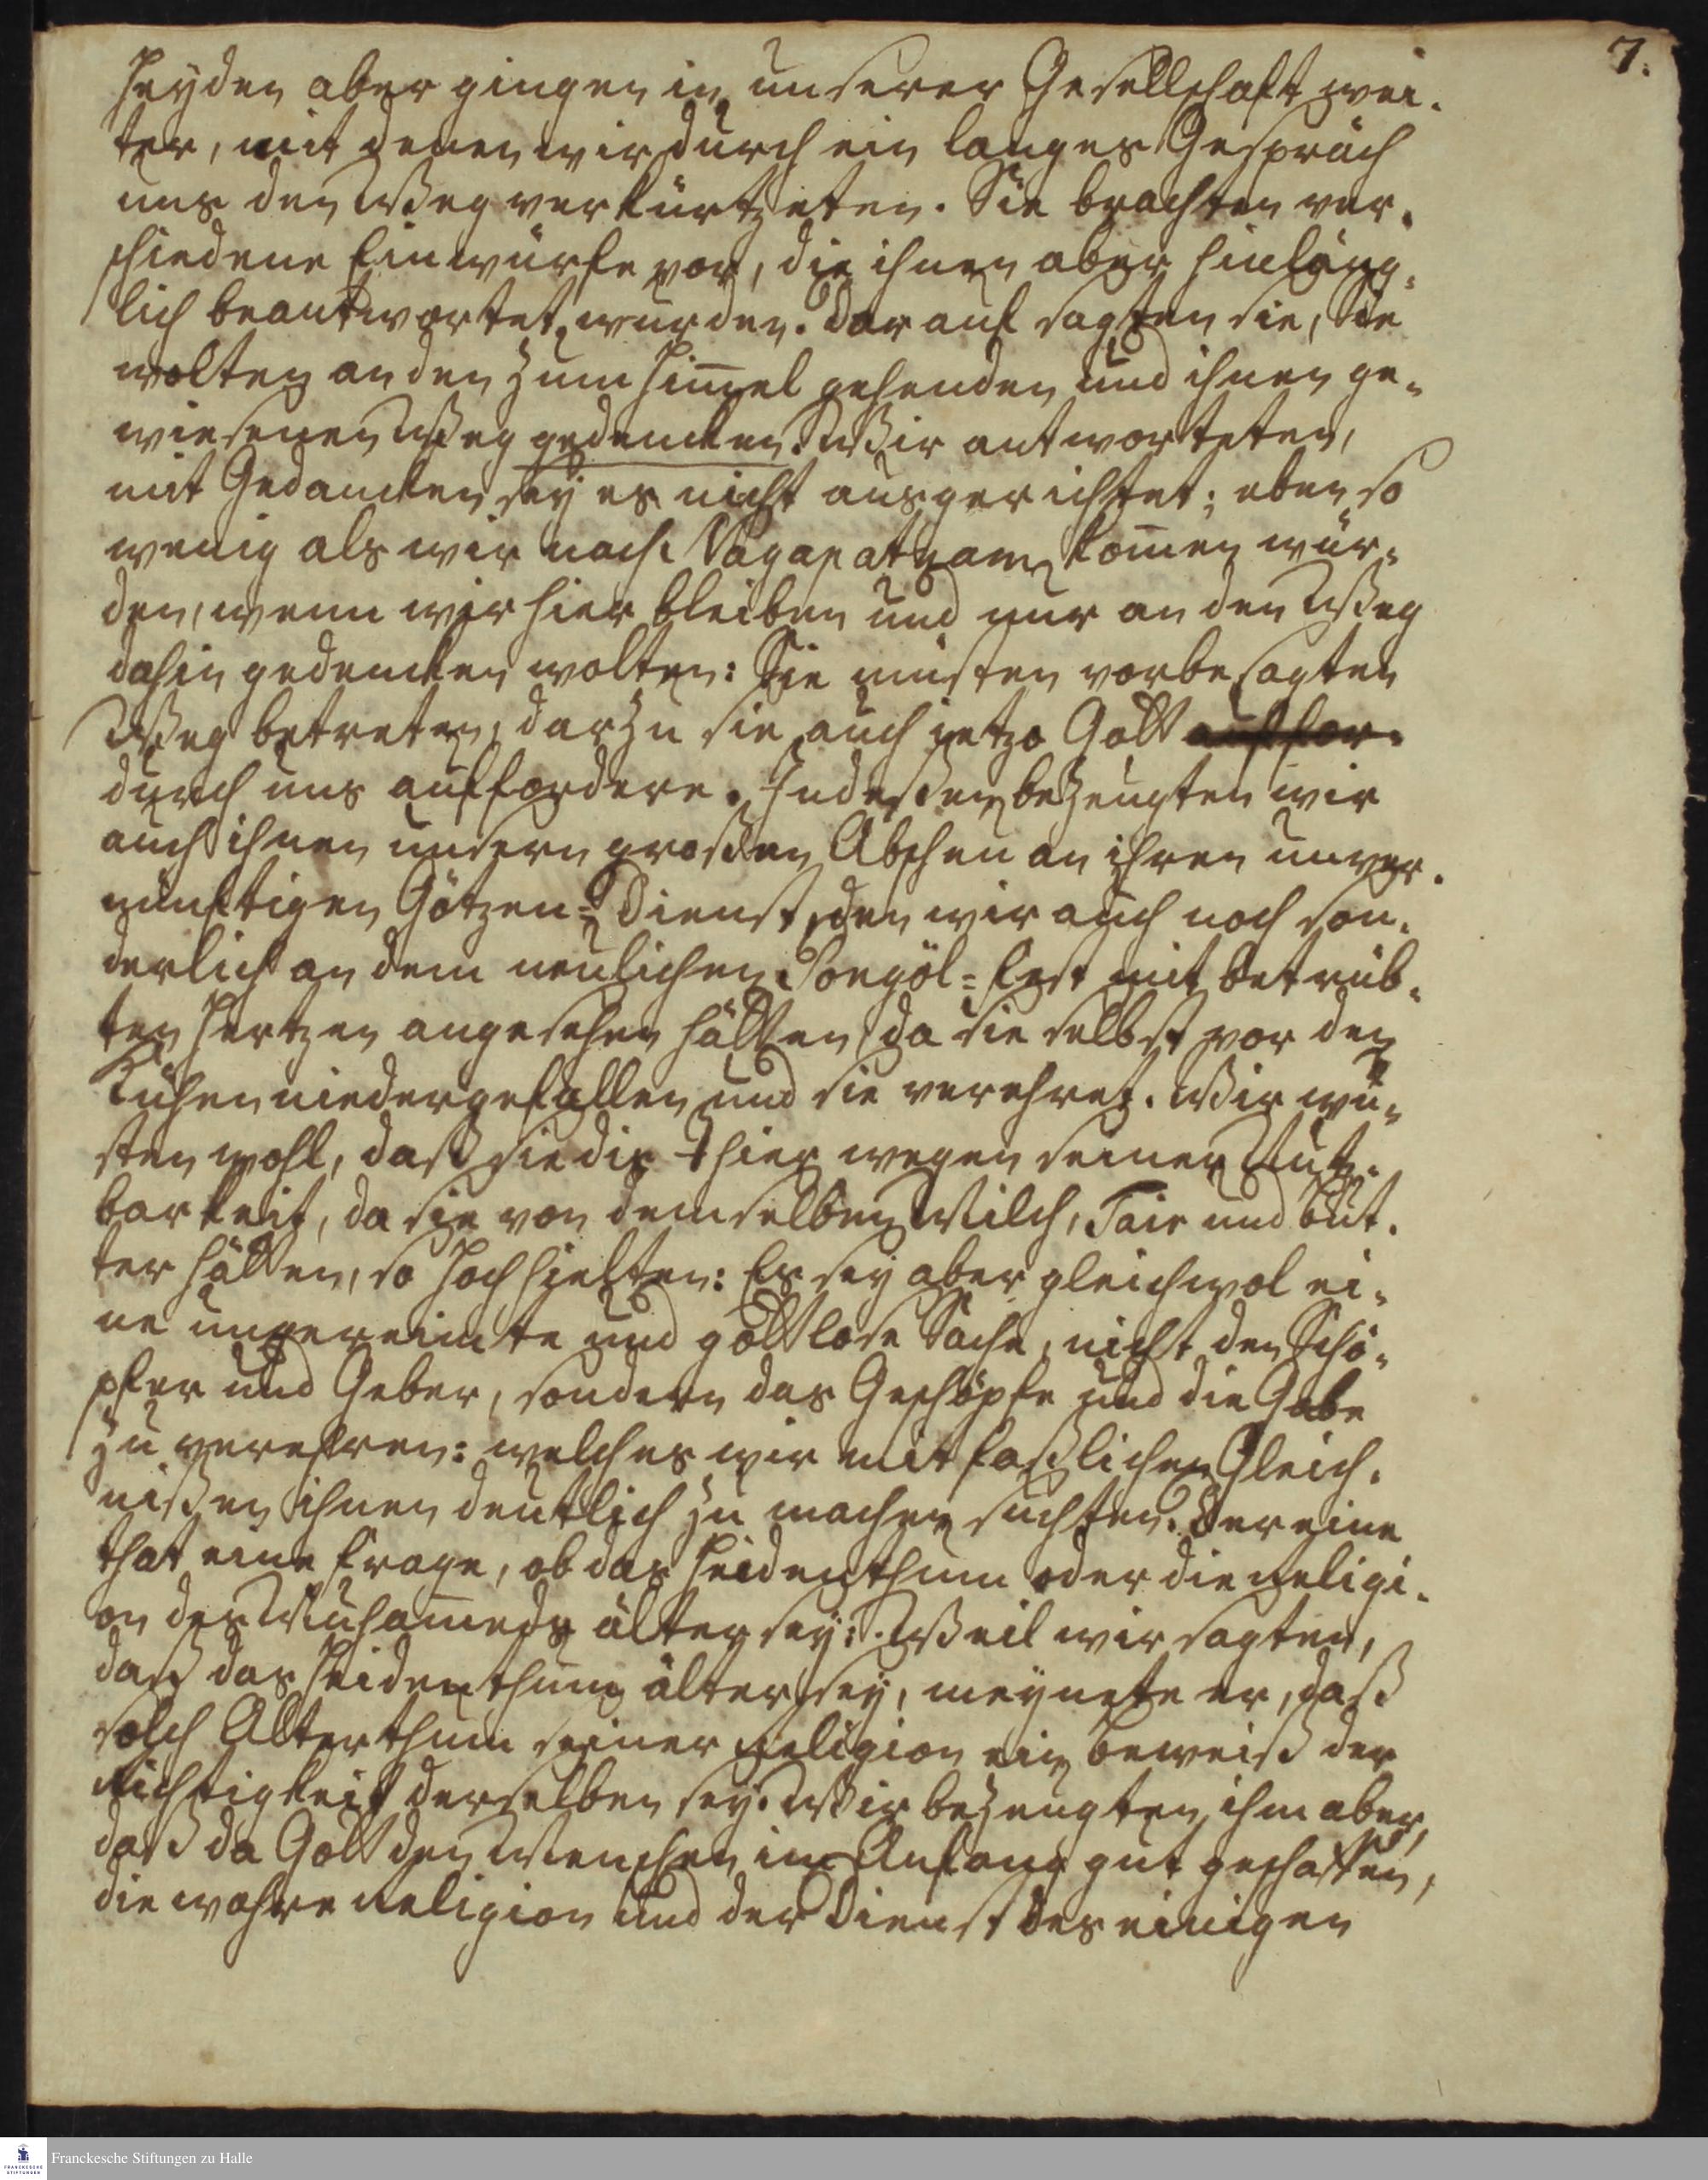 7.
Heyden aber gingen in unserer Gesellschaft wei-
ter, mit denen wir durch ein langes Gespräch
uns den Weg verkürtzeten. Sie brachten ver-
schiedene Einwürfe vor, die ihnen aber hinläng-
lich beantwortet wurden. Darauf sagten sie, Sie
wolten an den zum Him̄el gehenden und ihnen ge-
wiesenen Weg gedencken. Wir antworteten,
mit Gedancken sey es nicht ausgerichtet; eben so
wenig als wir nach Nagapatnam kom̄en wür-
den, wenn wir hier bleiben und nur an den Weg
dahin gedencken wolten: Sie müsten vorbesagten
Weg betreten, darzu sie auch jetzo Gott auffor-
durch uns auffordere. Indeßen bezeugten wir
auch ihnen unsern großen Abscheu an ihren unver-
nünftigen Götzen-Dienst, den wir auch noch son-
derlich an dem neulichen Pongöl-Fest mit betrüb-
ten Hertzen angesehen hätten, da sie selbst vor den
Kühen niedergefallen und sie verehret. Wir wü-
sten wohl, daß sie dis Thier wegen seiner Nutz-
barkeit, da sie von demselben Milch, Tair und But-
ter hätten, so hoch hielten: Es sey aber gleichwol ei-
ne ungereimte und gottlose Sache, nicht den Schö-
pfer und Geber, sondern das Geschöpfe und die Gabe
zu verehren: welches wir mit faßlichen Gleich-
nißen ihnen deutlich zu machen suchten. Der eine
that eine Frage, ob das Heidenthum oder die Religi-
on des Muham̄eds älter sey: Weil wir sagten,
daß das Heidenthum älter sey, meynete er, daß
solch Alterthum seiner Religion ein Beweiß der
Richtigkeit derselben sey. Wir bezeugten ihm aber,
daß da Gott den Menschen im Anfang gut geschaffen,
die wahre Religion und der Dienst des einigen
Franckesche Stiftungen zu Halle
FRANCKESCHE
STIFTUNGEN